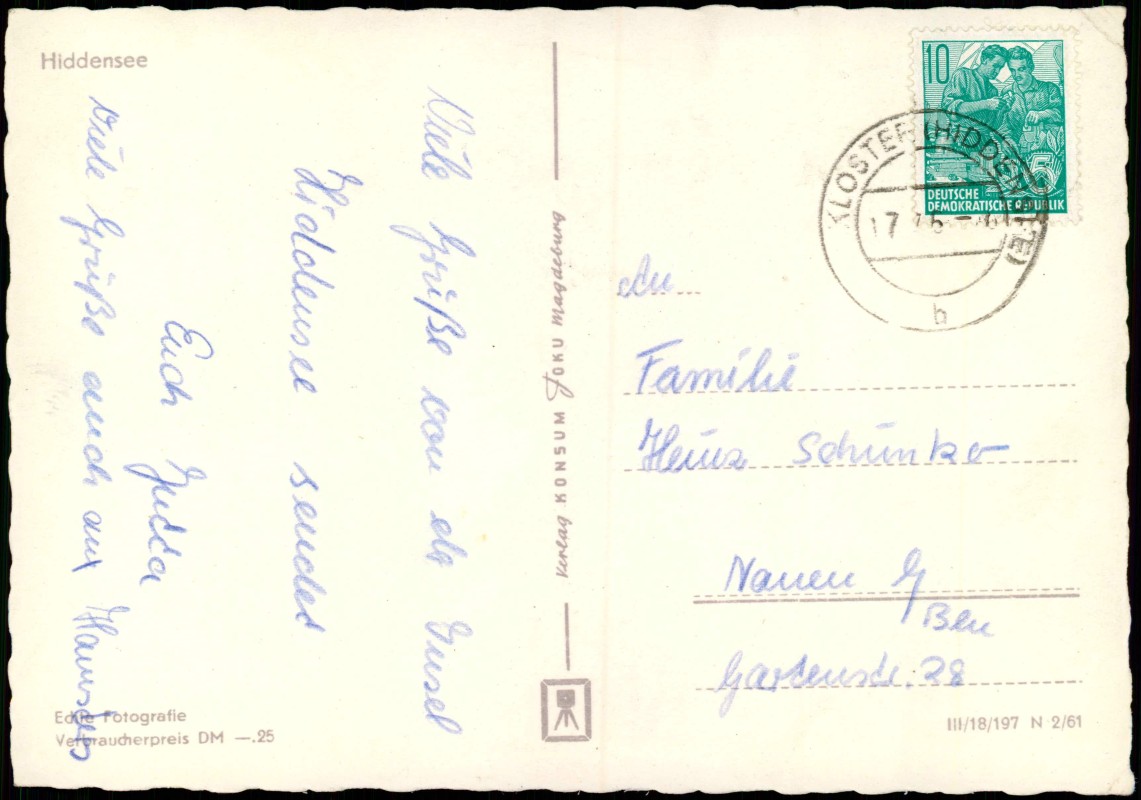 Hiddensee
Viele Grüße von der Insel
Hiddensee sendet
Euch Jutta
Viele Grüße auch aus
Echte Fotografie
Verbraucherpreis DM —.25
Verlag KONSUM FOKU Magdeburg
10
DEUTSCHE
DEMOKRATISCHE REPUBLIK
KLOSTER (HIDDENSEE)
17
b
An
Familie
Heinz Schünke
Nauen b/
Bln
Gartenstr. 28
III/18/197 N 2/61